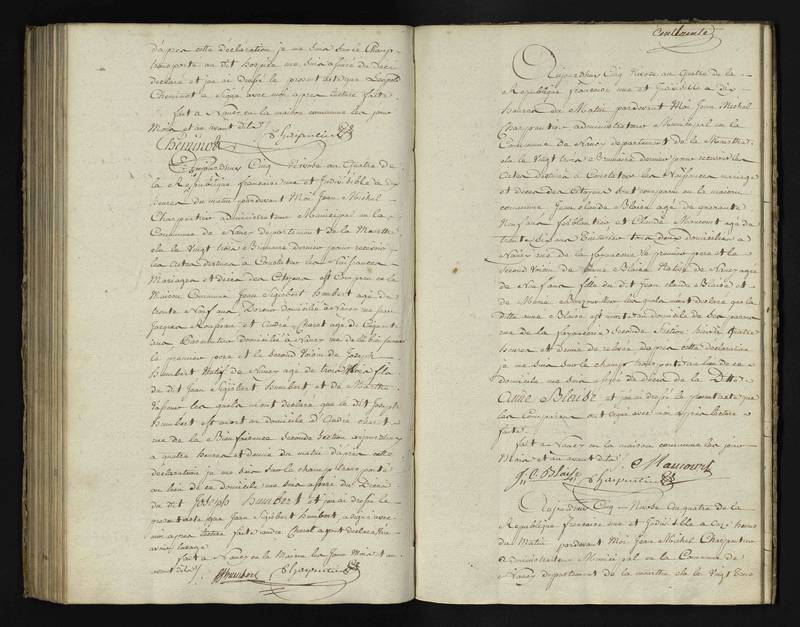 d'après cette déclaration je me suis sur le Champ
transporté au dit hospice me suis assuré du Deces
déclaré et j'ai ai dressé le present acte que Leopold
Cheminot a signé avec moi apres lecture faite
fait a Nancy en la maison commune les jour
Mois et an avant dits
Cheminot Charpentier
Aujourdhui Cinq Nivose an Quatre de
la Republique francaise une et Indivisible a dix
heures du matin pardevant Moi Jean Michel
Charpentier administrateur Municipal en la
Commune de Nancy departement de la Meurthe
elu le Vingt trois Brumaire dernier pour recevoir
les actes destinés a Constater les Naissances
Mariages et Décès des Citoyens est Comparu en la
Maison Commune Jean Sigisbert Humbert agé de
trente Neuf ans domicilié a Nancy rue
Jacques et andré Charet agé de
ans domicilié a Nancy rue de la Bienfaisance
le premier pere et le Second Voisin de Joseph
Humbert Natif de Nancy agé de trois Mois fils
de dit Jean Sigisbert Humbert et de Marthe
les quels m'ont déclaré que le dit Joseph
Humbert est mort au domicile d'André Charet
rue de la Bienfaisance Seconde Section
a quatre heures et demie du matin d'après cette
déclaration je me suis sur le champ transporté
au lieu de ce domicile me suis assuré du Décès
du dit Joseph Humbert et j'ai ai dressé le
present acte que Jean Sigisbert Humbert a signé avec
moi apres lecture faite andré Charet a
fait a Nancy en la Maison les jour Mois et an
avant dits
Humbert Charpentier
Aujourdhui Cinq Nivose an Quatre de la
Republique francaise une et Indivisible a Dix
heures du Matin pardevant Moi Jean Michel
Charpentier administrateur Municipal en la
Commune de Nancy departement de la Meurthe
elu le Vingt trois Brumaire dernier pour recevoir les
actes destinés a Constater les Naissances Mariage
et décès des Citoyens sont comparus en la maison
commune Jean Claude Blaise agé de quarante
Neuf ans ferblantier et Claude Maucourt agé de
trente tous deux domiciliés a
Nancy rue de la fayencerie le premier pere et le
Second Voisin de Anne Blaise Native de Nancy agée
de Neuf ans fille du dit Jean Claude Blaise et
de Marie les quels mont declaré que la
ditte anne Blaise est morte au domicile de son pere
rue de la fayencerie Seconde Section hier a quatre
heures et demie de relevée d'après cette déclaration
je me suis sur le champ transporté au lieu de ce
Domicile me suis assuré du décès de la Ditte
Anne Blaise et j'ai ai dressé le present acte que
les Comparans ont signé avec moi Après lecture
faite
fait a Nancy en la maison commune les jour
Mois et an avant dits
J. C. Blaise C Maucourt
Charpentier
Aujourdhui Cinq Nivose an quatre de la
Republique francaise une et Indivisible a dix heures
du Matin pardevant Moi Jean Michel Charpentier
administrateur Municipal en la Commune de
Nancy departement de la meurthe elu le Vingt trois